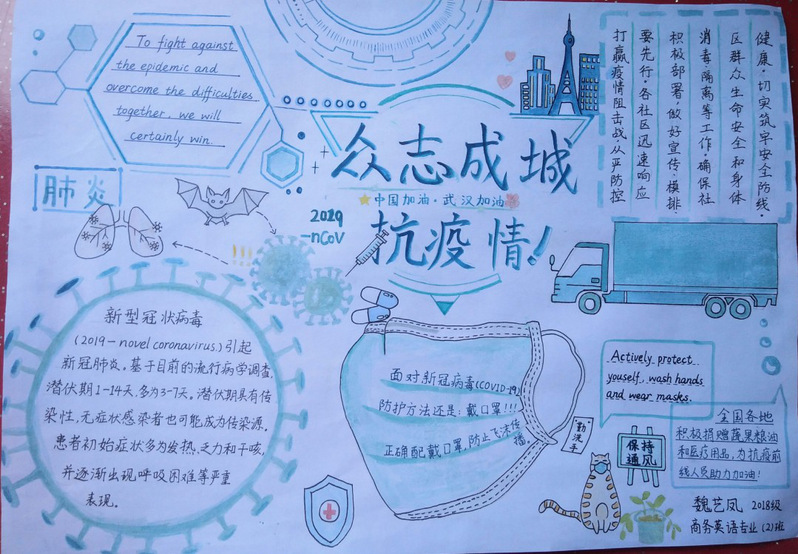 To fight against
the epidemic and
overcome the difficulties
together, we will
certainly win.
众志成城
中国加油·武汉加油
抗疫情!
打赢疫情阻击战从严防控
要先行。各社区迅速响应
积极部署,做好宣传、模排
消毒隔离等工作确保社
区群众生命安全和身体
健康,切实筑牢安全防线。
肺炎
2019
-nCoV
新型冠状病毒
(2019-novel coronavirus)引起
新冠肺炎。基于目前的流行病学调查,
潜伏期1-14天,多为3-7天。潜伏期具有传
染性,无症状感染者也可能成为传染源。
患者初始症状多为发热、乏力和干咳,
并逐渐出现呼吸困难等严重
表现。
面对新冠病毒(COVID-19)
防护方法还是:戴口罩!!!
正确配戴口罩,防止飞沫传
播。
Actively protect
youself, wash hands
and wear masks.
勤洗手
保持
通风
全国各地
积极捐赠蔬果粮油
和医疗用品,为抗疫前
线人员助力加油!
魏艺凤 2018级
商务英语专业(2)班